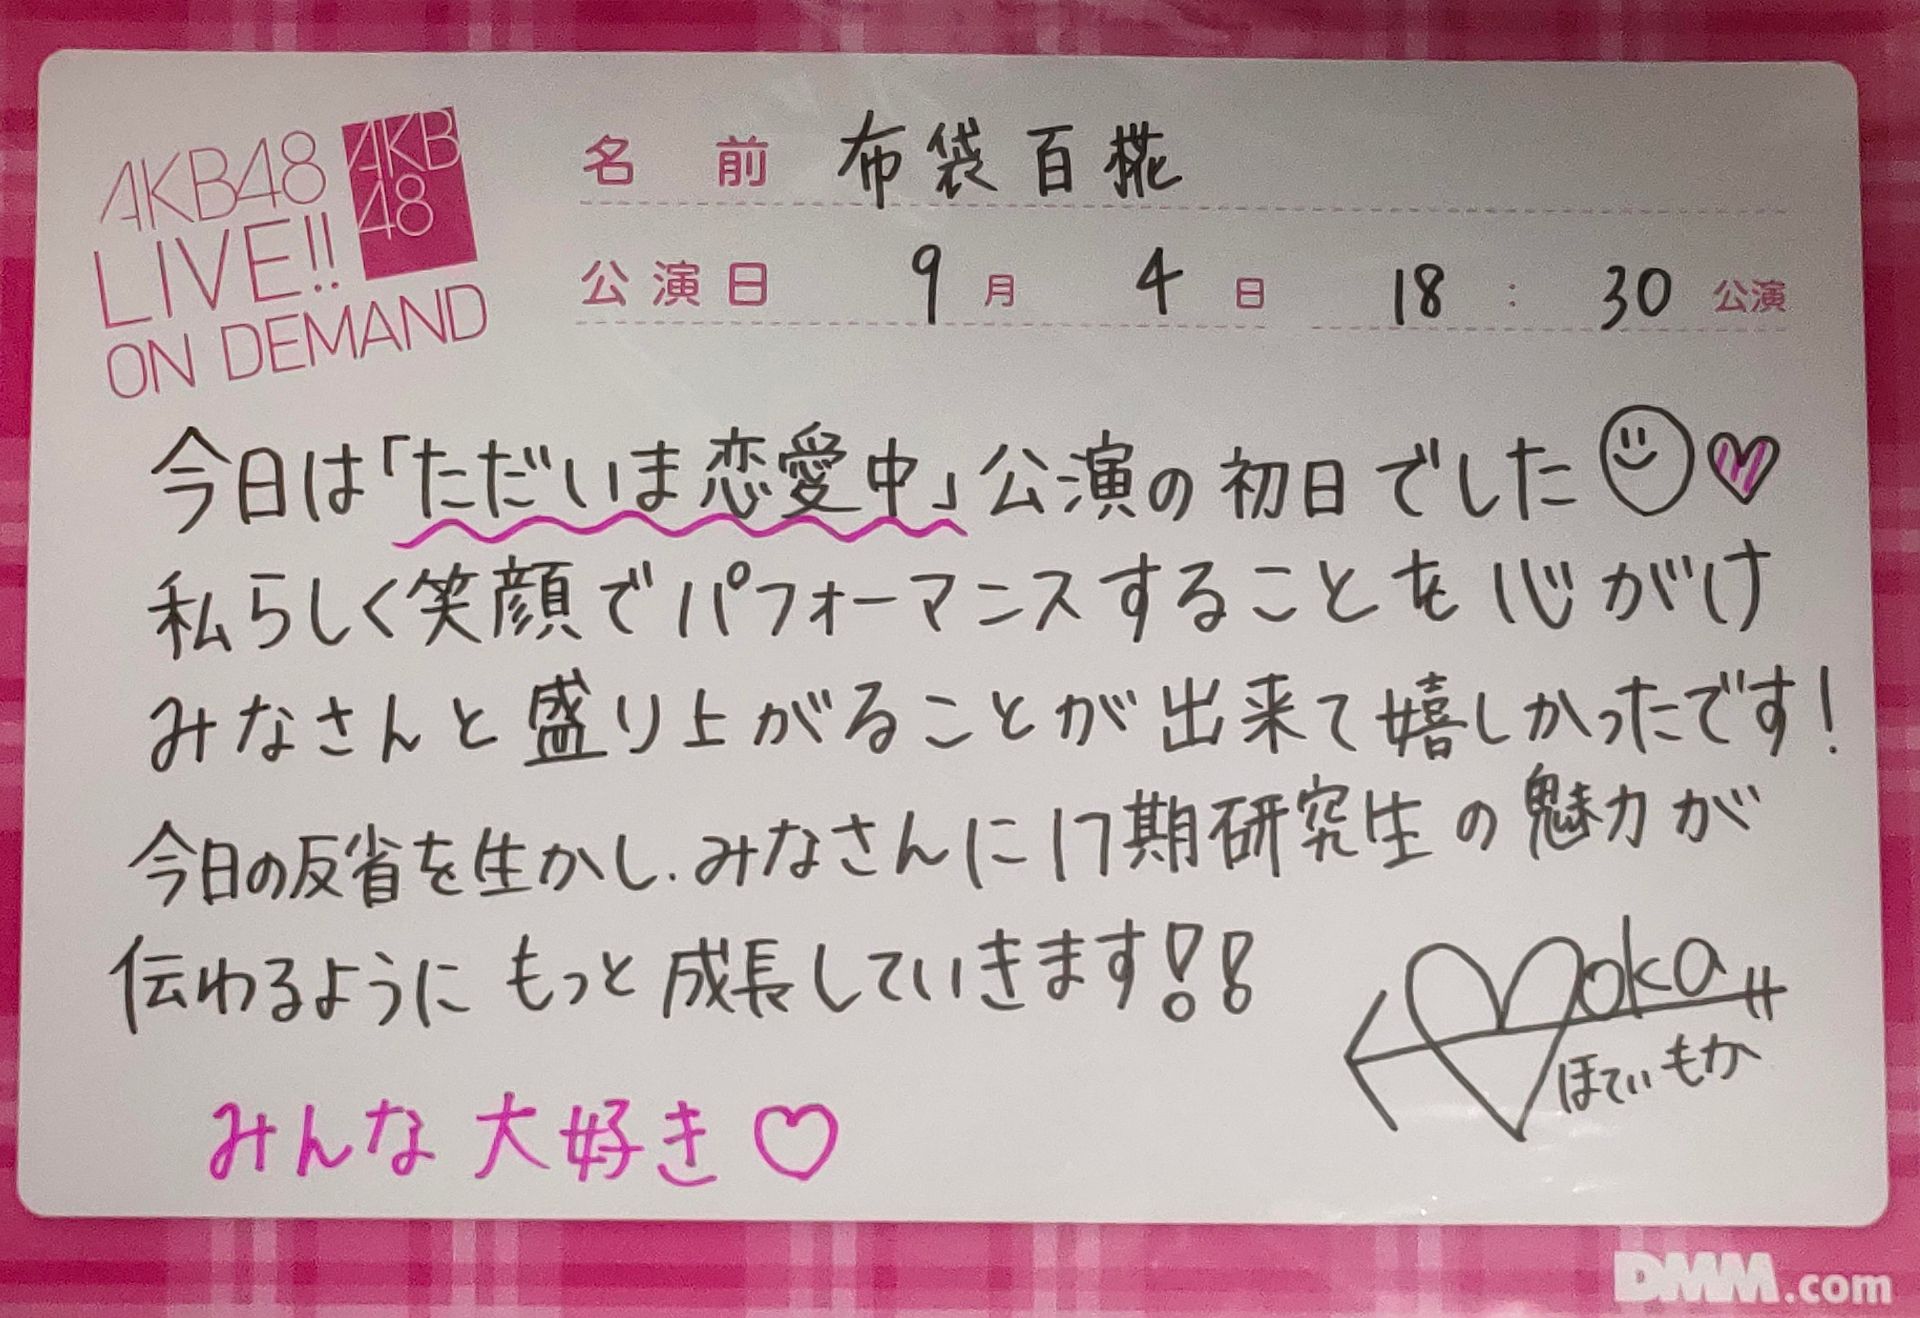 AKB48
LIVE!!
ON DEMAND
AKB
48
名前 布袋百椛
公演日 9月4日 18:30公演
今日は「ただいま恋愛中」公演の初日でした
私らしく笑顔でパフォーマンスすることを心がけ
みなさんと盛り上がることが出来て嬉しかったです!
今日の反省を生かし、みなさんに17期研究生の魅力が
伝わるようにもっと成長していきます!!
Moka
ほていもか
みんな大好き♡
DMM.com